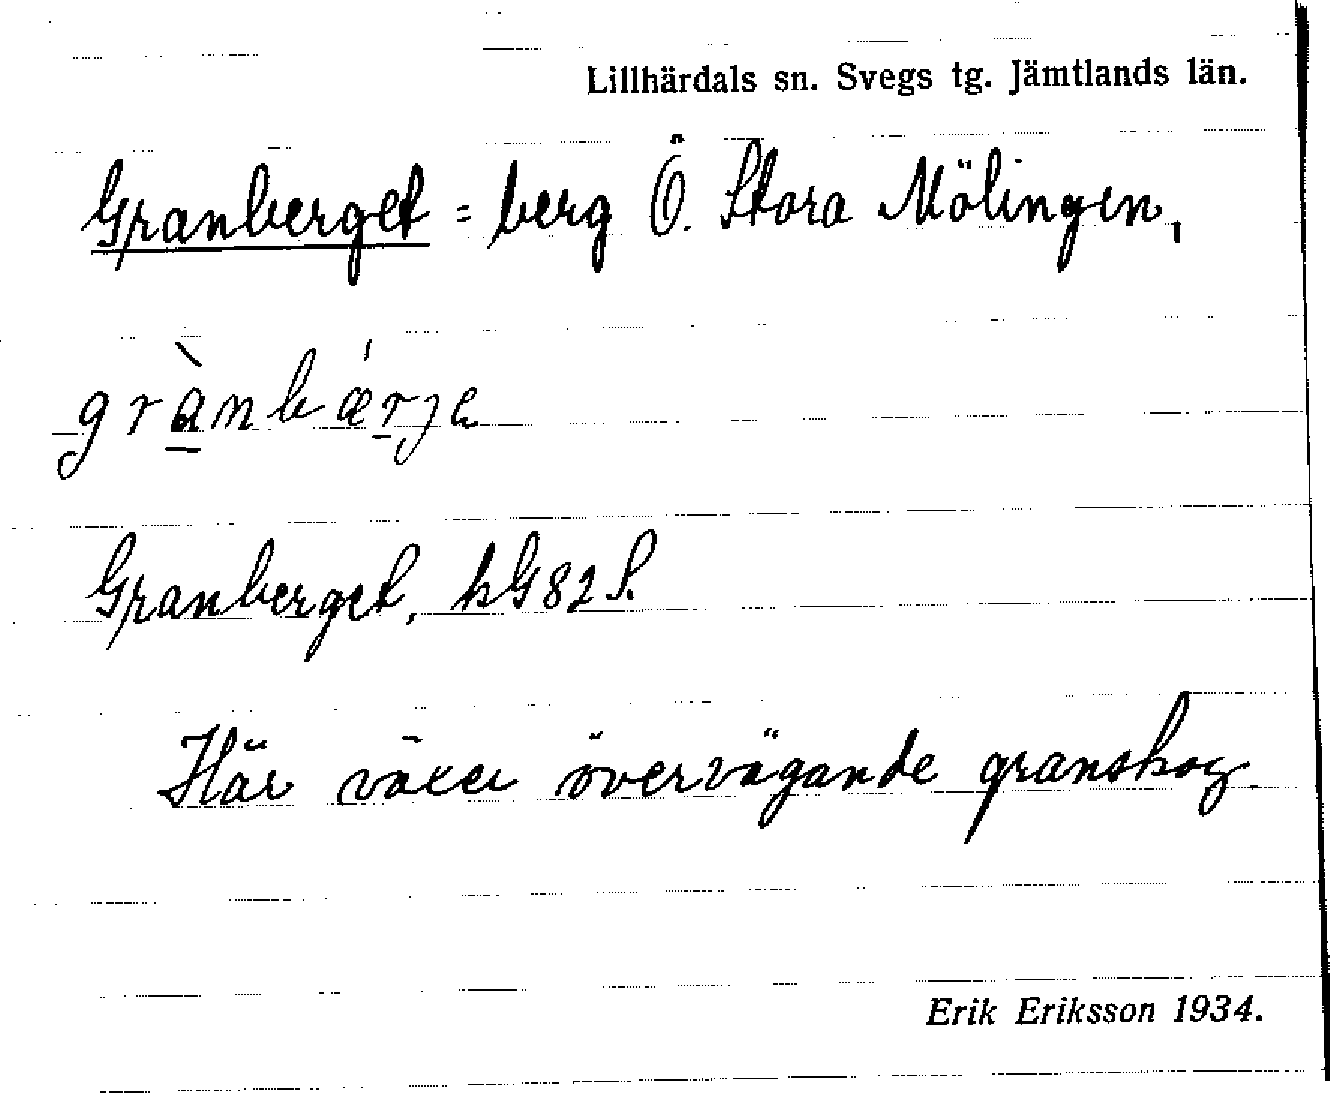 Lillhärdals sn. Svegs tg. Jämtlands län.
Granberget = berg Ö. Stora Mölingen,
grànbǽrje
Granberget, kG82S.
Här växer övervägande granskog
Erik Eriksson 1934.